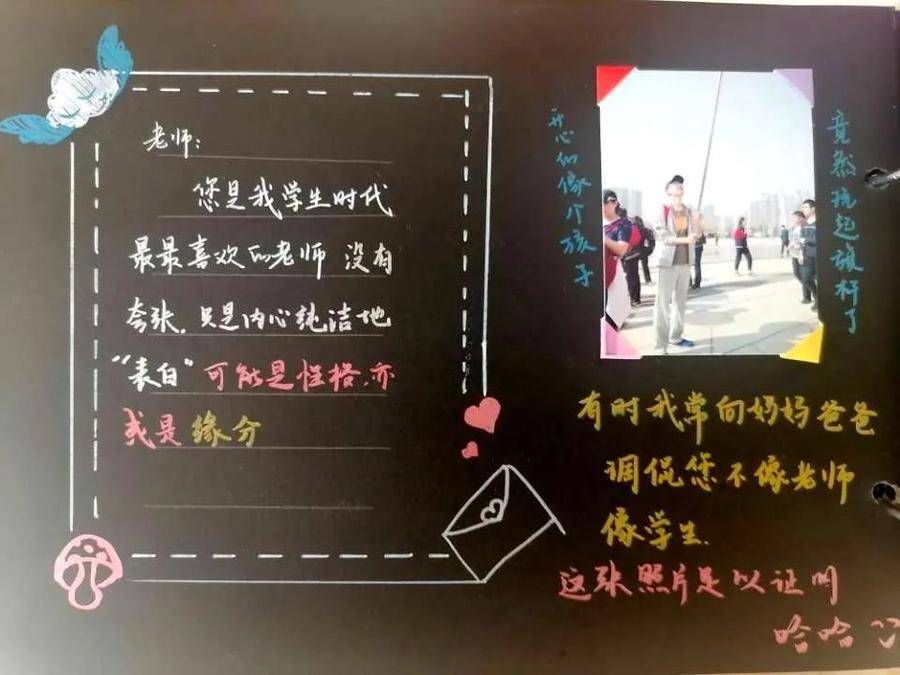 老师:
您是我学生时代
最最喜欢的老师 没有
夸张,只是内心纯洁地
“表白”可能是性格,亦
或是缘分
开心的像个孩子
竟然玩起旗杆了
有时我常向妈妈爸爸
调侃您不像老师
像学生.
这张照片足以证明
哈哈